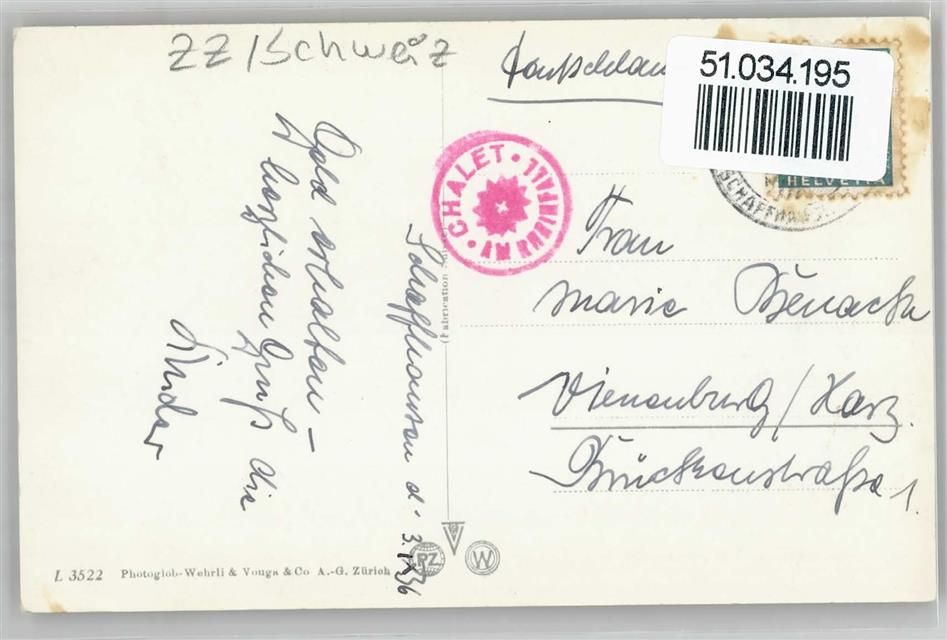 ZZ/Schweiz
51.034.195
HELVETIA
SCHAFFHAUSEN
CHALET · AM RHEINFALL ·
Schaffhausen d. 3.IX.36
Geld erhalten –
Herzlichen Gruß die
Kinder
Frau
Marie
Vienenburg/Harz.
Brückenstraße 1.
(Fabrication
PZ
W
L 3522 Photoglob-Wehrli & Vouga & Co A.-G. Zürich